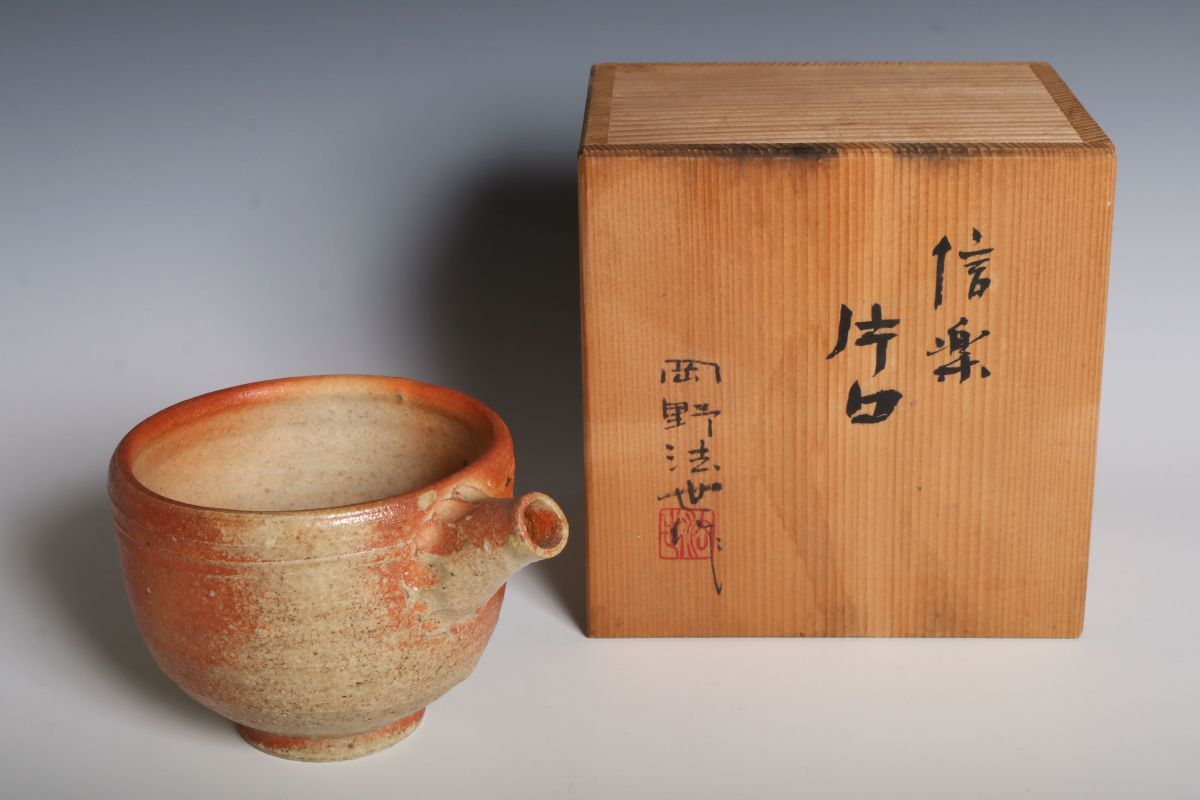 信楽
片口
岡野法世作